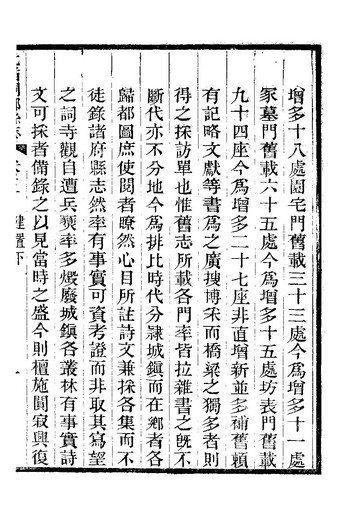 增多十八處園宅門舊載三十三處今爲增多十一處
冢墓門舊載六十五處今爲增多十五處坊表門舊載
九十四座今爲增多二十七座非直增新並多補舊賴
有記略文獻等書爲之廣搜博采而橋梁之獨多者則
得之採訪單也惟舊志所載各門率皆拉雜書之旣不
斷代亦不分地今爲排比時代分隸城鎭而在鄉者各
歸都圖庶使閱者瞭然心目所註詩文兼採各集而不
徒錄諸府縣志然率有事實可資考證而非取其寫望
之詞寺觀自遭兵燹率多燬廢城鎭各叢林有事實詩
文可採者備錄之以見當時之盛今則檀施闃寂興復
建置下
一